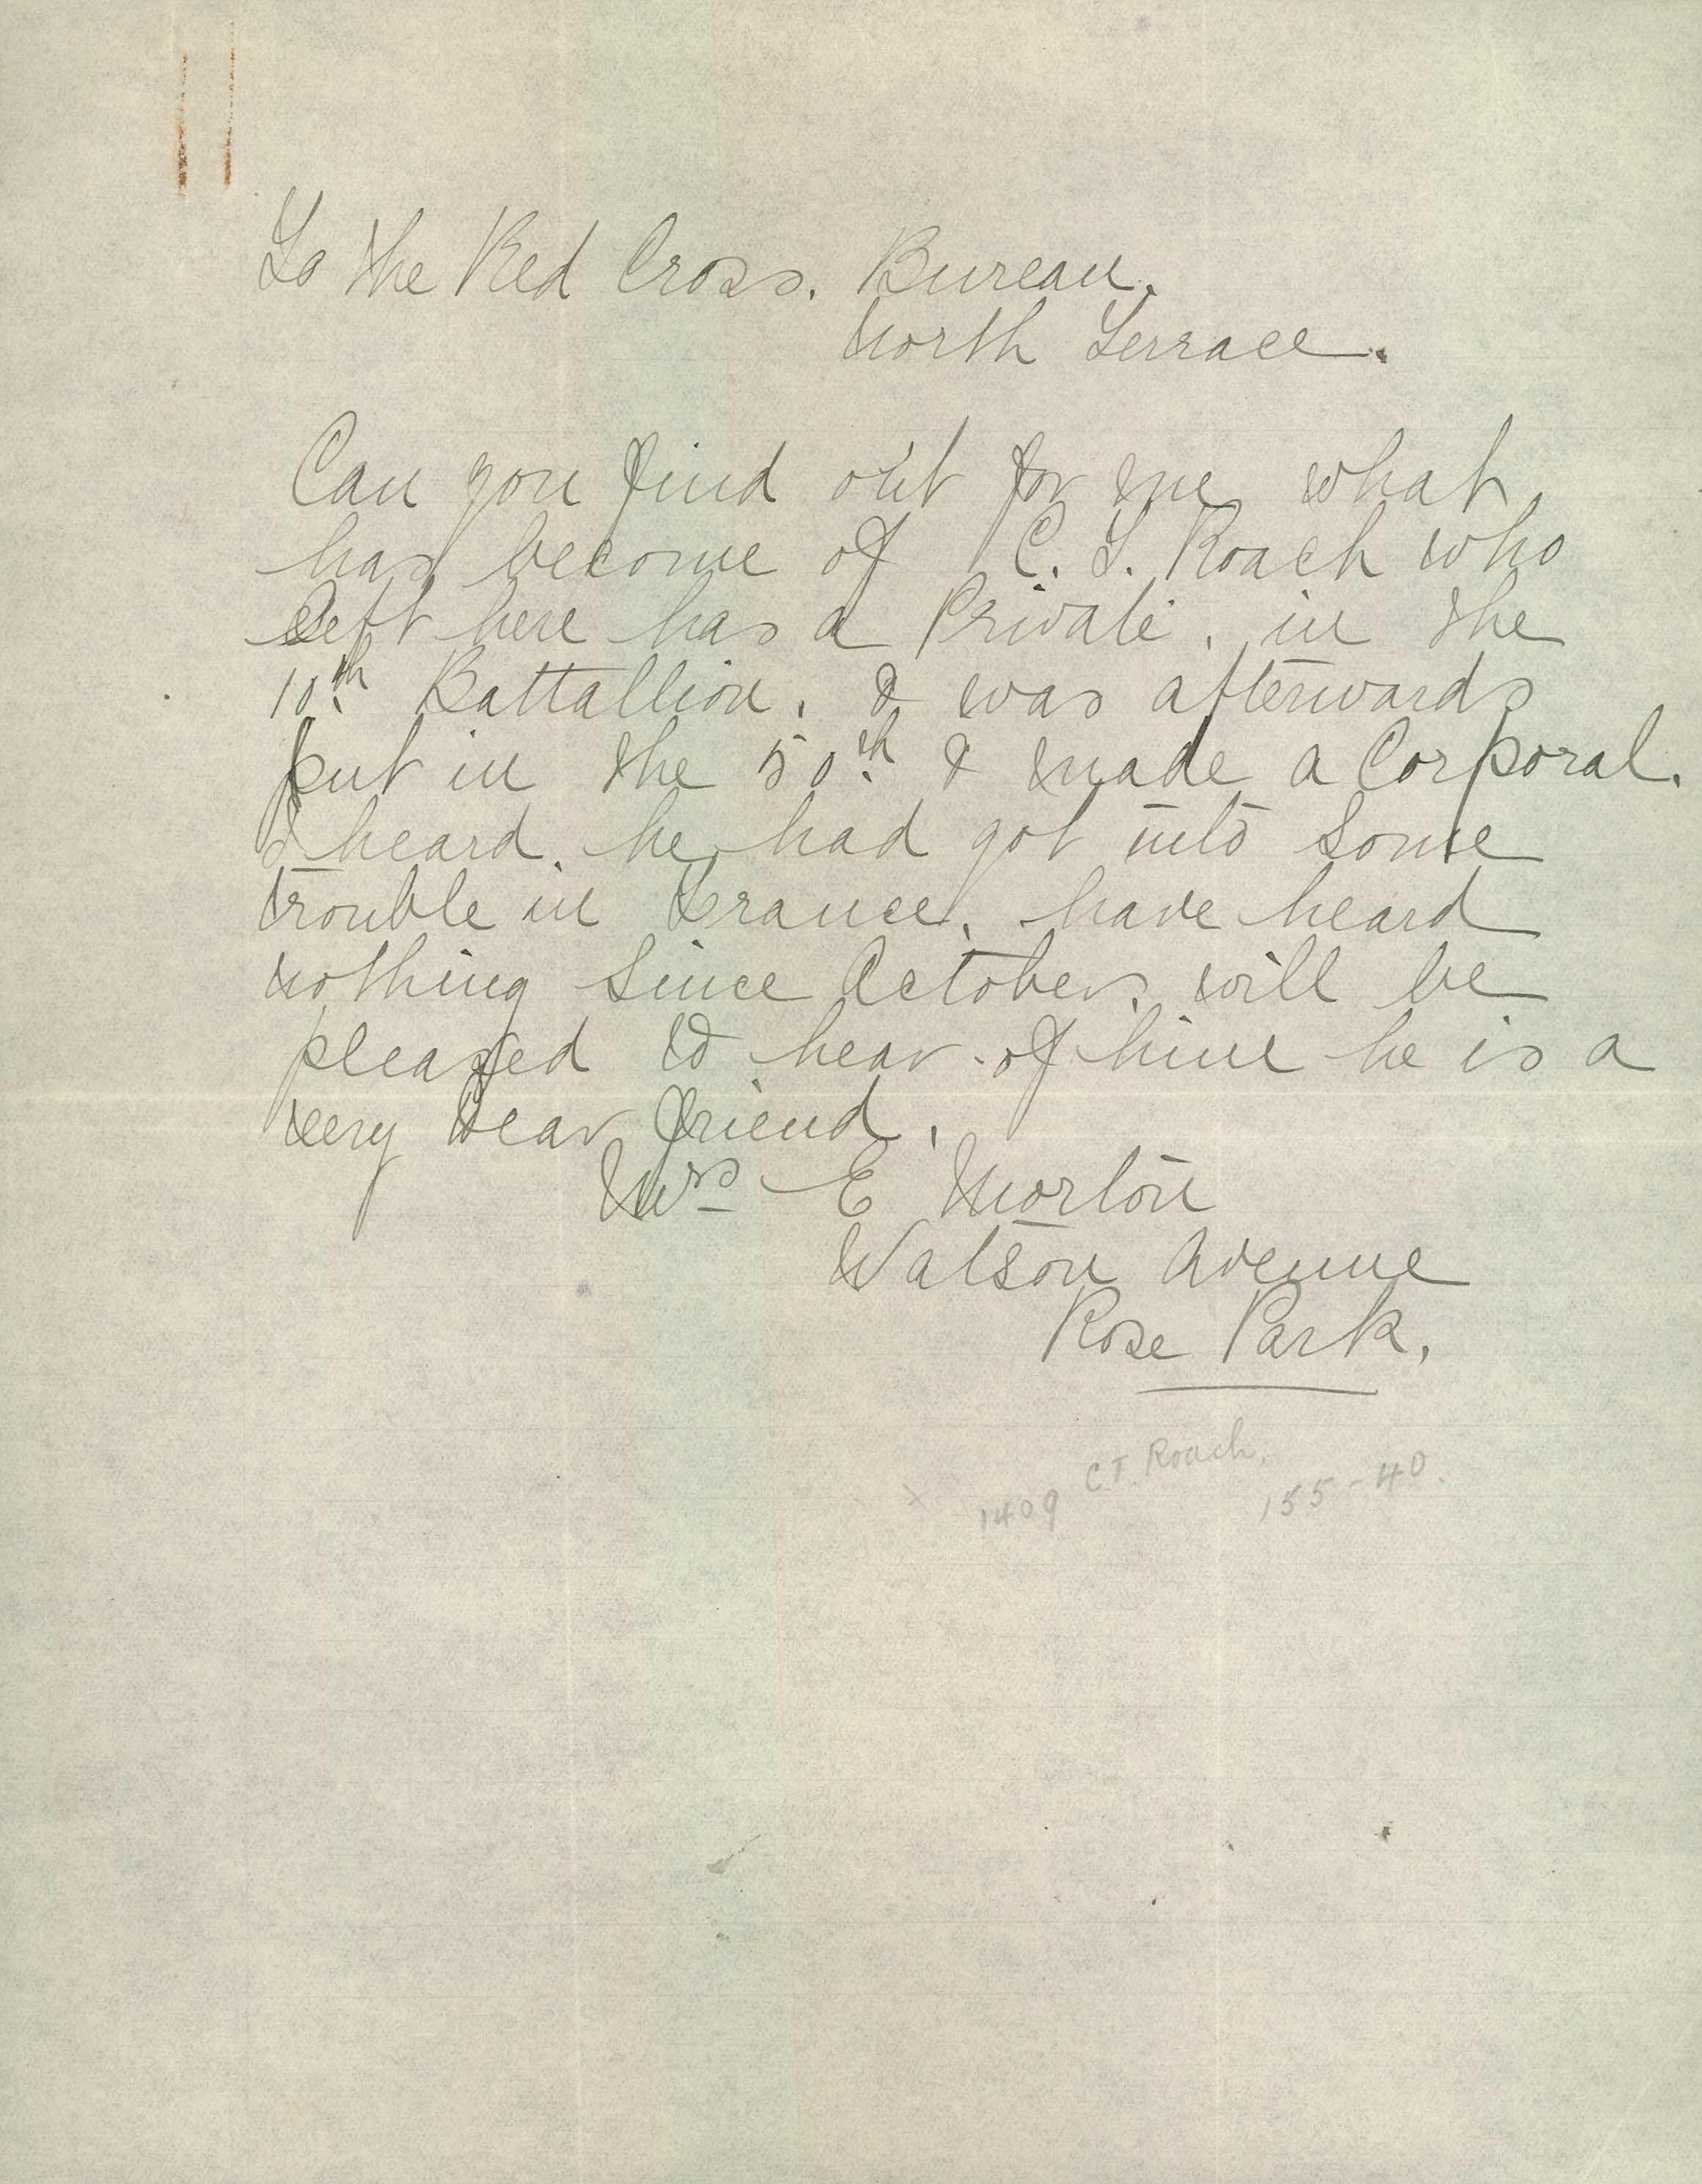 To the Red Cross. Bureau.
North Terrace.
Can you find out for me what
has become of C. T. Roach who
left here has a Private. in the
10th Battallion. & was afterwards
put in the 50th & made a Corporal.
I heard. he had got into some
trouble in France. have heard
nothing since October. will be
pleased to hear of him he is a
very dear friend.
Mrs E Morton
Watson Avenue
Rose Park.
x 1409 C.T. Roach, 155-40.